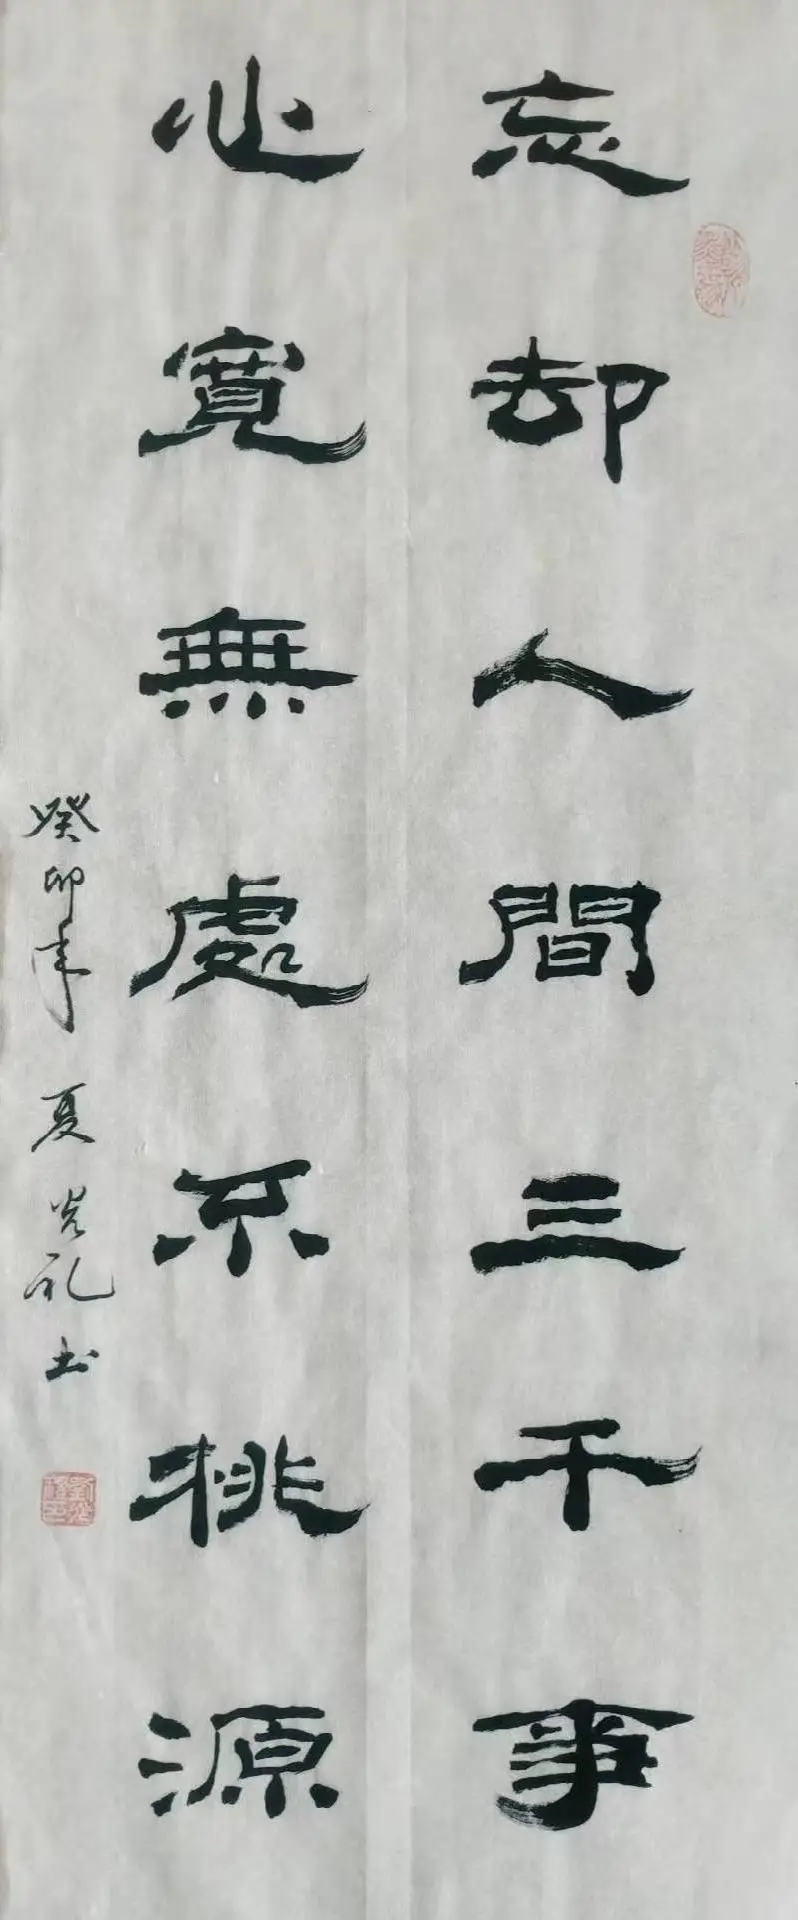 忘却人間三千事
心寬無處不桃源
癸卯年 夏光礼书